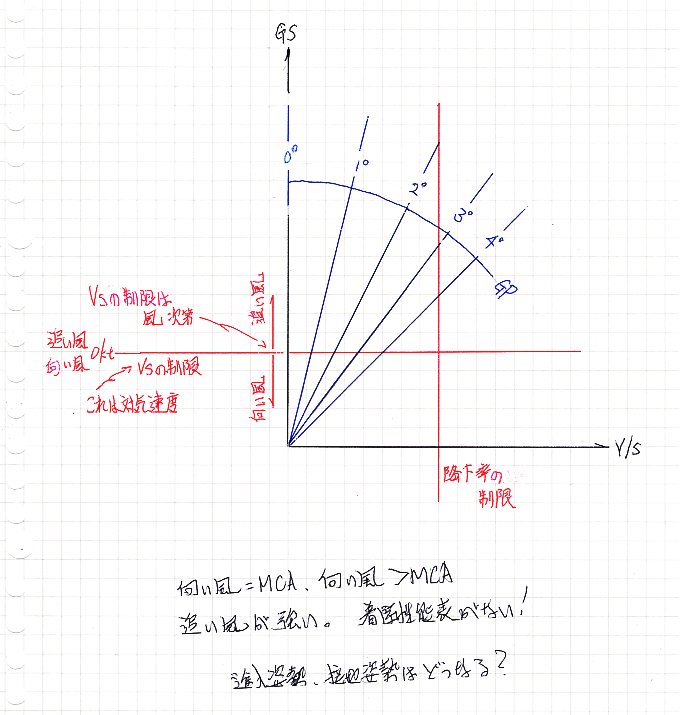 GS
0°
1°
2°
3°
4°
GP
Vsの制限は
風次第
追い風
追い風
向い風
0kt
Vsの制限
これは対気速度
向い風
V/S
降下率の
制限
向い風=MCA、向い風>MCA
追い風が強い。 着陸性能表がない!
進入姿勢、接地姿勢はどうなる?